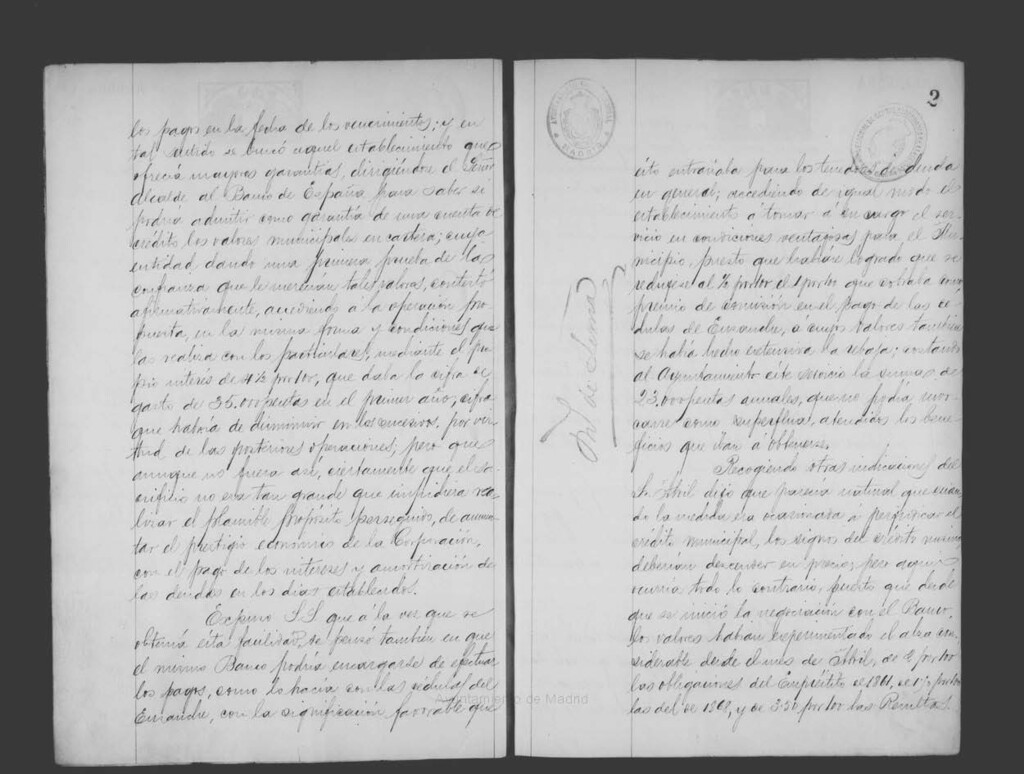 los pagos en la fecha de los vencimientos; y en
tal sentido se buscó aquel establecimiento que
ofrecía mayores garantías, dirigiéndose el Señor
Alcalde al Banco de España para saber si
podría admitir como garantía de una cuenta de
crédito los valores municipales en cartera; cuya
entidad, dando una primera prueba de la
confianza que le merecían tales valores, contestó
afirmativamente, accediendo á la operación pro-
puesta, en la misma forma y condiciones que
la realiza con los particulares, mediante el pro-
pio interés de 4½ por 100, que daba la cifra de
gasto de 35.000 pesetas en el primer año, cifra
que habría de disminuir en los sucesivos, por vir-
tud, de las posteriores operaciones, pero que
aunque no fuera así, ciertamente que el sa-
crificio no era tan grande que impidiera rea-
lizar el plausible propósito perseguido, de aumen-
tar el prestigio económico de la Corporación,
con el pago de los intereses y amortización de
las deudas en los días establecidos.
Expuso S.S. que á la vez que se
obtenía esta facilidad, se pensó también en que
el mismo Banco podría encargarse de efectuar
los pagos, como lo hacía con las cédulas del
Ensanche, con la significación favorable que
2
ésto entrañaba para los tenedores de deuda
en general; accediendo de igual modo el
establecimiento á tomar á su cargo el ser-
vicio en condiciones ventajosas para el Mu-
nicipio, puesto que habíase logrado que se
redujese al ½ por 100, el 1 por 100 que cobraba como
premio de comisión en el pago de las cé-
dulas de Ensanche, á cuyos valores también
se había hecho extensiva la rebaja; costando
al Ayuntamiento este servicio la suma de
23.000 pesetas anuales, que no podía invo-
carse como superflua, atendidos los bene-
ficios que iban á obtenerse.
Recogiendo otras indicaciones del
Sr. Abril dijo que parecía natural que cuan-
do la medida era ocasionada á perjudicar el
crédito municipal, los signos del crédito mismo
deberían descender en precio; pero aquí
ocurría todo lo contrario, puesto que desde
que se inició la negociación con el Banco,
los valores habían experimentado el alza con-
siderable desde el mes de Abril, de ½ por 100
las obligaciones del Empréstito de 1861, de por 100
las del de 1868, y de 3'50 por 100 las Resultas.
Ayuntamiento de Madrid